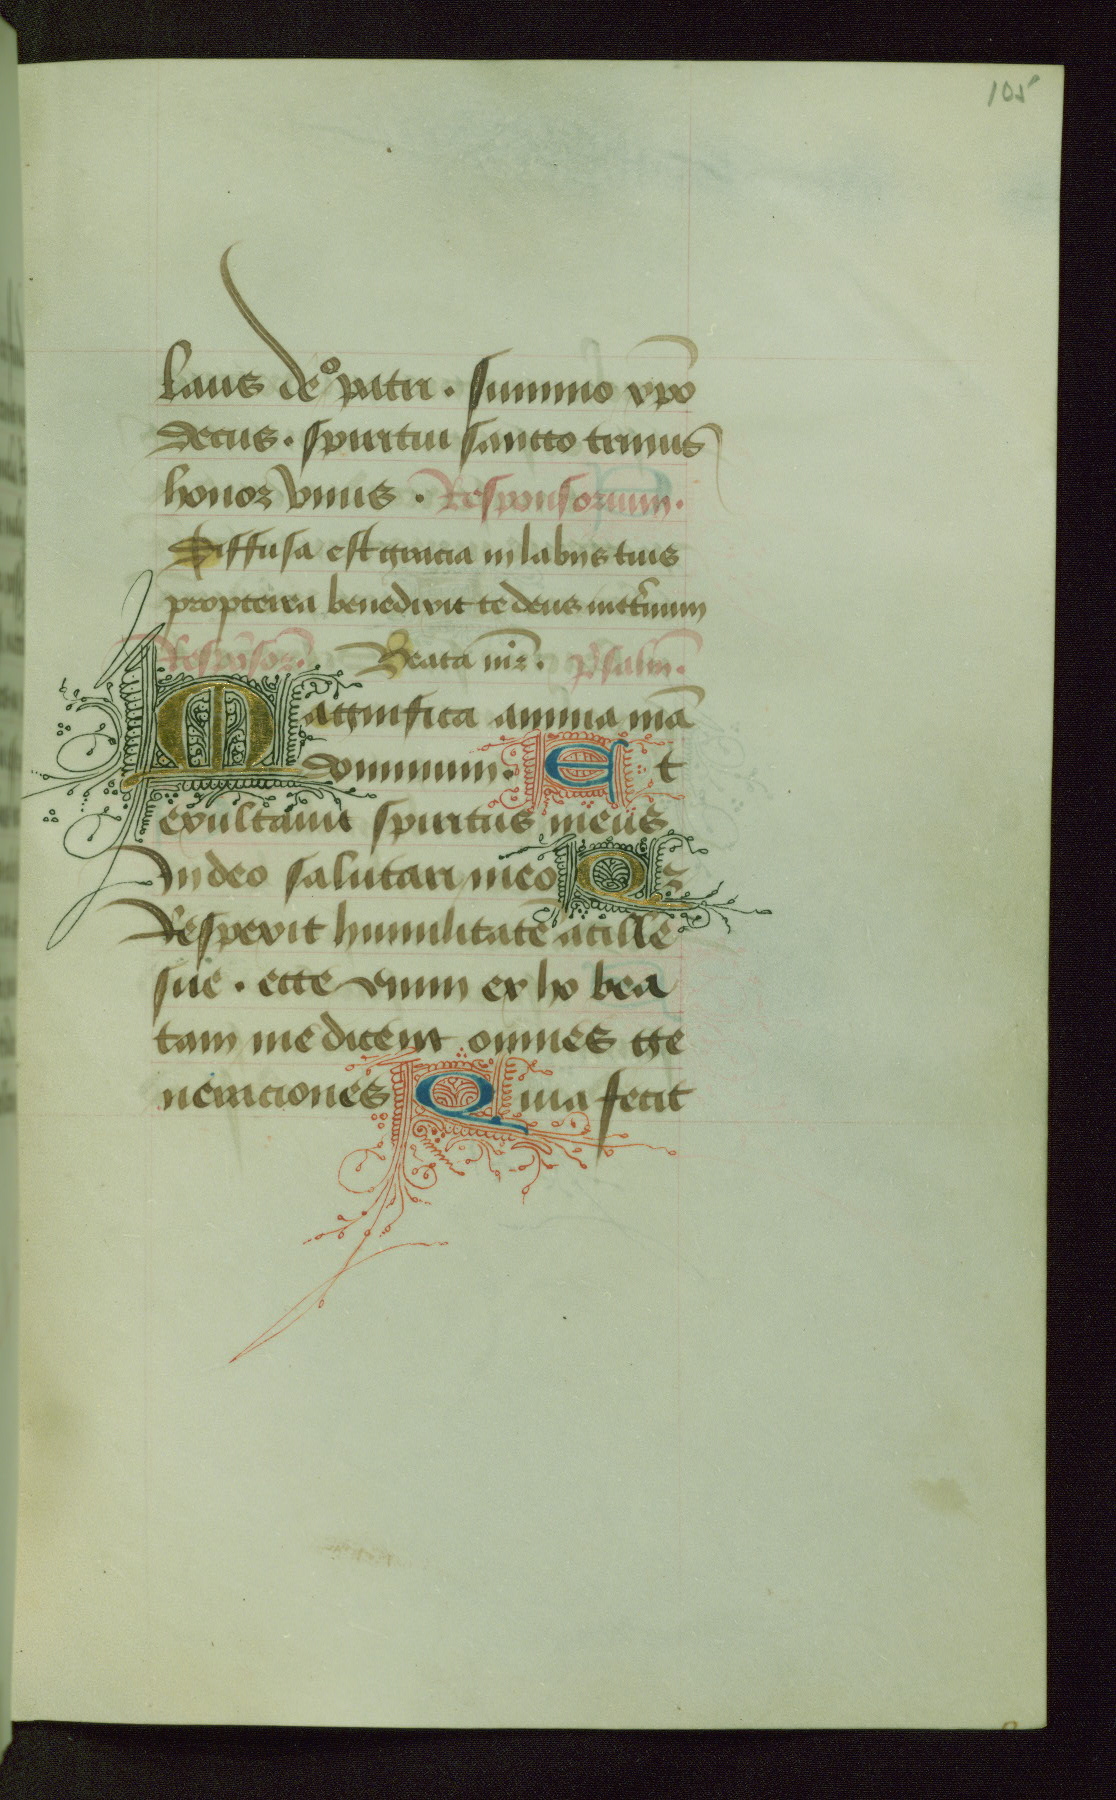 105
laus deo patri . summo xpō
decus . spiritui sancto trinus
honor vnus . Responsorium .
Diffusa est gracia in labijs tuis
propterea benedixit te deus in etternum
Respōsor . Beata mr̄ . Psalm .
Magnifica anima mā
dominum . Et
exultauit spiritus meus
In deo salutari meo Qz
Respexit humilitatē ācille
sue . ecce enim ex ho bea
tam me dicent omnes ge
neraciones Quia fecit